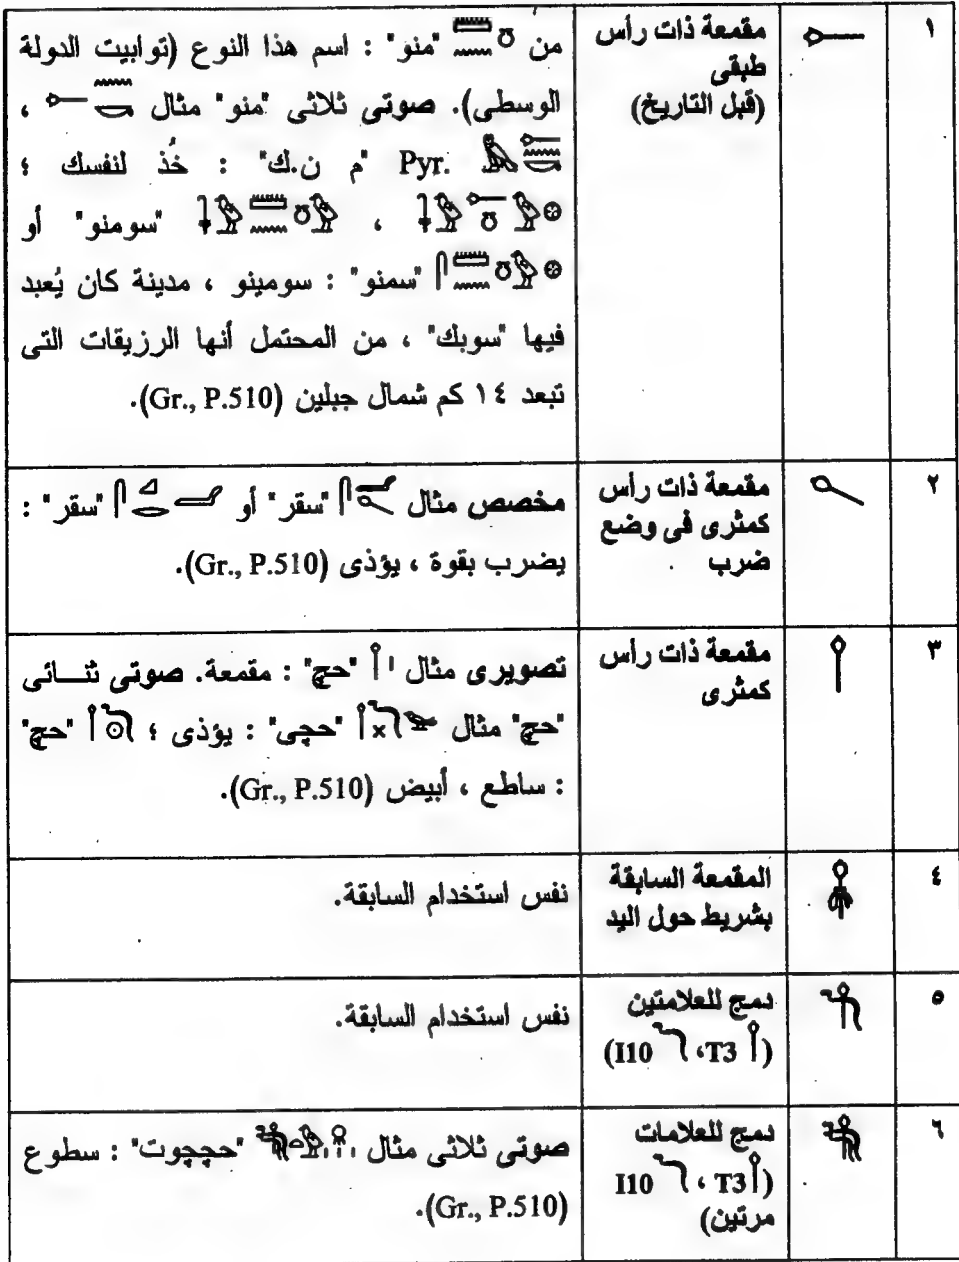 ١
𓌇
مقمعة ذات رأس
طبقى
(قبل التاريخ)
من "منو" : اسم هذا النوع (توابيت الدولة
الوسطى). صوتى ثلاثى "منو" مثال ،
Pyr. "م ن.ك" : خُذ لنفسك ؛
، "سومنو" أو
"سمنو" : سومينو ، مدينة كان يُعبد
فيها "سوبك" ، من المحتمل أنها الرزيقات التى
تبعد ١٤ كم شمال جبلين (Gr., P.510).
٢
𓌈
مقمعة ذات رأس
كمثرى فى وضع
ضرب
مخصص مثال "سقر" أو "سقر" :
يضرب بقوة ، يؤذى (Gr., P.510).
٣
𓌉
مقمعة ذات رأس
كمثرى
تصويرى مثال 𓌉𓏤 "حچ" : مقمعة. صوتى ثنـــائى
"حچ" مثال "حچى" : يؤذى ؛ "حچ"
: ساطع ، أبيض (Gr., P.510).
٤
𓌊
المقمعة السابقة
بشريط حول اليد
نفس استخدام السابقة.
٥
𓌋
دمج للعلامتين
(𓌉 T3، 𓆓 I10)
نفس استخدام السابقة.
٦
𓌌
دمج للعلامات
(𓌉 T3 ، 𓆓 I10
مرتين)
صوتى ثلاثى مثال "حچچوت" : سطوع
(Gr., P.510).